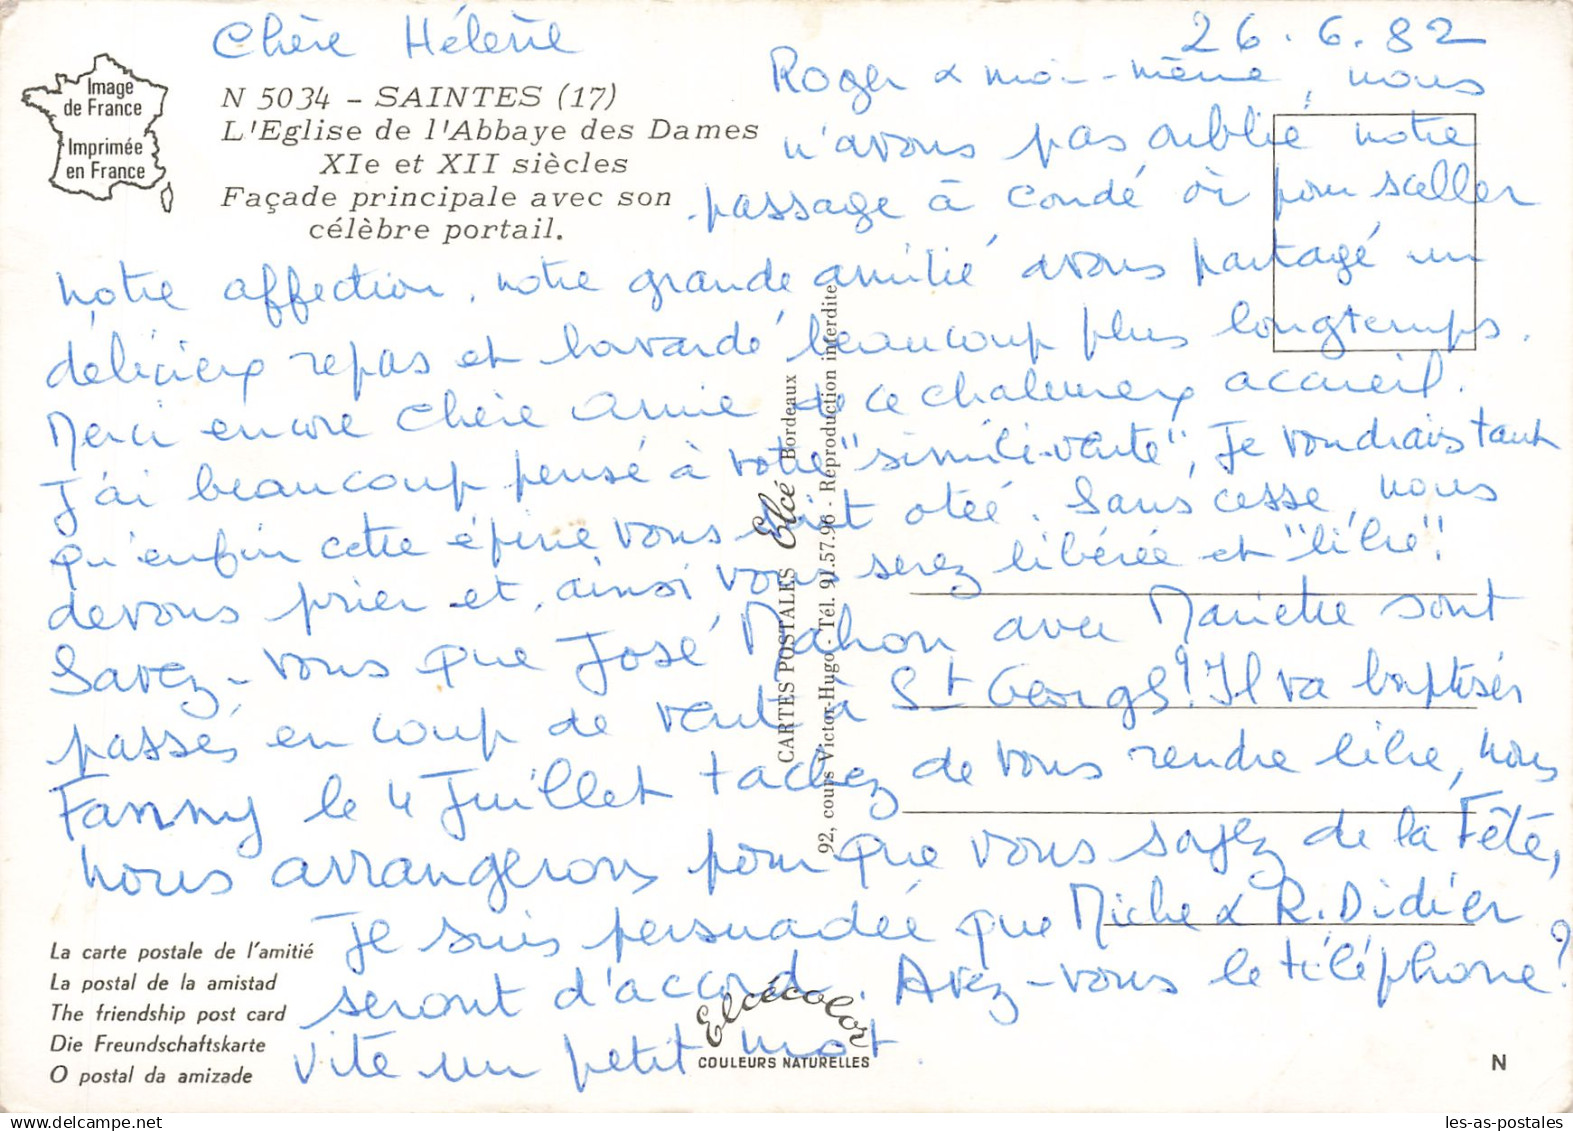 Chère Hélène
26.6.82
Roger & moi-même, nous
n'avons pas oublié notre
passage à Condé où pour sceller
notre affection, notre grande amitié avons partagé un
délicieux repas et bavardé beaucoup plus longtemps.
Merci encore Chère Amie de ce chaleureux accueil.
J'ai beaucoup pensé à votre "simili-vente", Je voudrais tant
qu'enfin cette épine vous soit otée. Sans cesse, nous
devons prier et, ainsi vous serez libérée et "libre".
Savez-vous que José Mahon avec Mariette sont
passés en coup de vent à St Georges? Il va baptiser
Fanny le 4 Juillet tachez de vous rendre libre, nous
nous arrangerons pour que vous soyez de la Fête,
Je suis persuadée que Miche & R. Didier
seront d'accord. Avez-vous le téléphone?
Vite un petit mot.
Image
de France
Imprimée
en France
N 5034 - SAINTES (17)
L'Eglise de l'Abbaye des Dames
XIe et XII siècles
Façade principale avec son
célèbre portail.
CARTES POSTALES Elcé Bordeaux
92, cours Victor-Hugo - Tél. 91.57.96 - Reproduction interdite
La carte postale de l'amitié
La postal de la amistad
The friendship post card
Die Freundschaftskarte
O postal da amizade
Elcécolor
COULEURS NATURELLES
N
les-as-postales